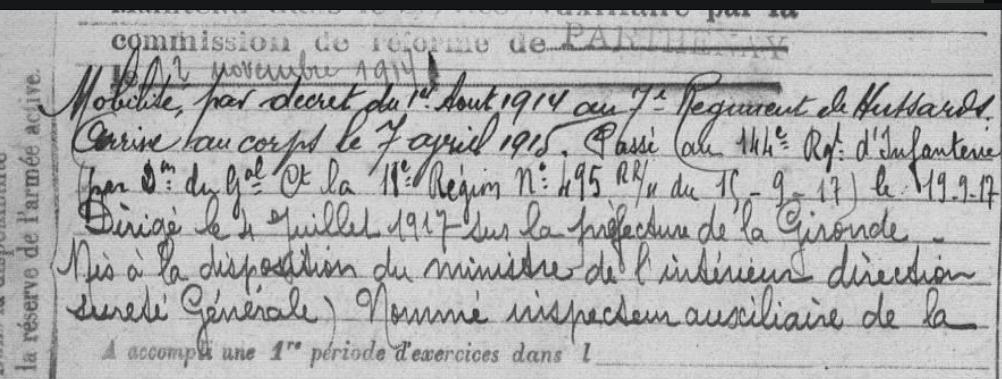 Maintenu dans le service auxiliaire par la
commission de réforme de PARTHENAY
le 2 novembre 1914
Mobilisé, par décret du 1er Aout 1914 au 7e Regiment de Hussards.
Arrivé au corps le 7 avril 1915. Passé au 144e Rgt d'Infanterie
(par Dm du Gal Ct la 18e Région No 495 RR/11 du 15-9-17) le 19.9.17
Dirigé le 4 Juillet 1917 sur la préfecture de la Gironde.
Mis à la disposition du ministre de l'intérieur direction
sureté Générale) Nommé inspecteur auxiliaire de la
A accompli une 1re période d'exercices dans l
la réserve de l'armée active.